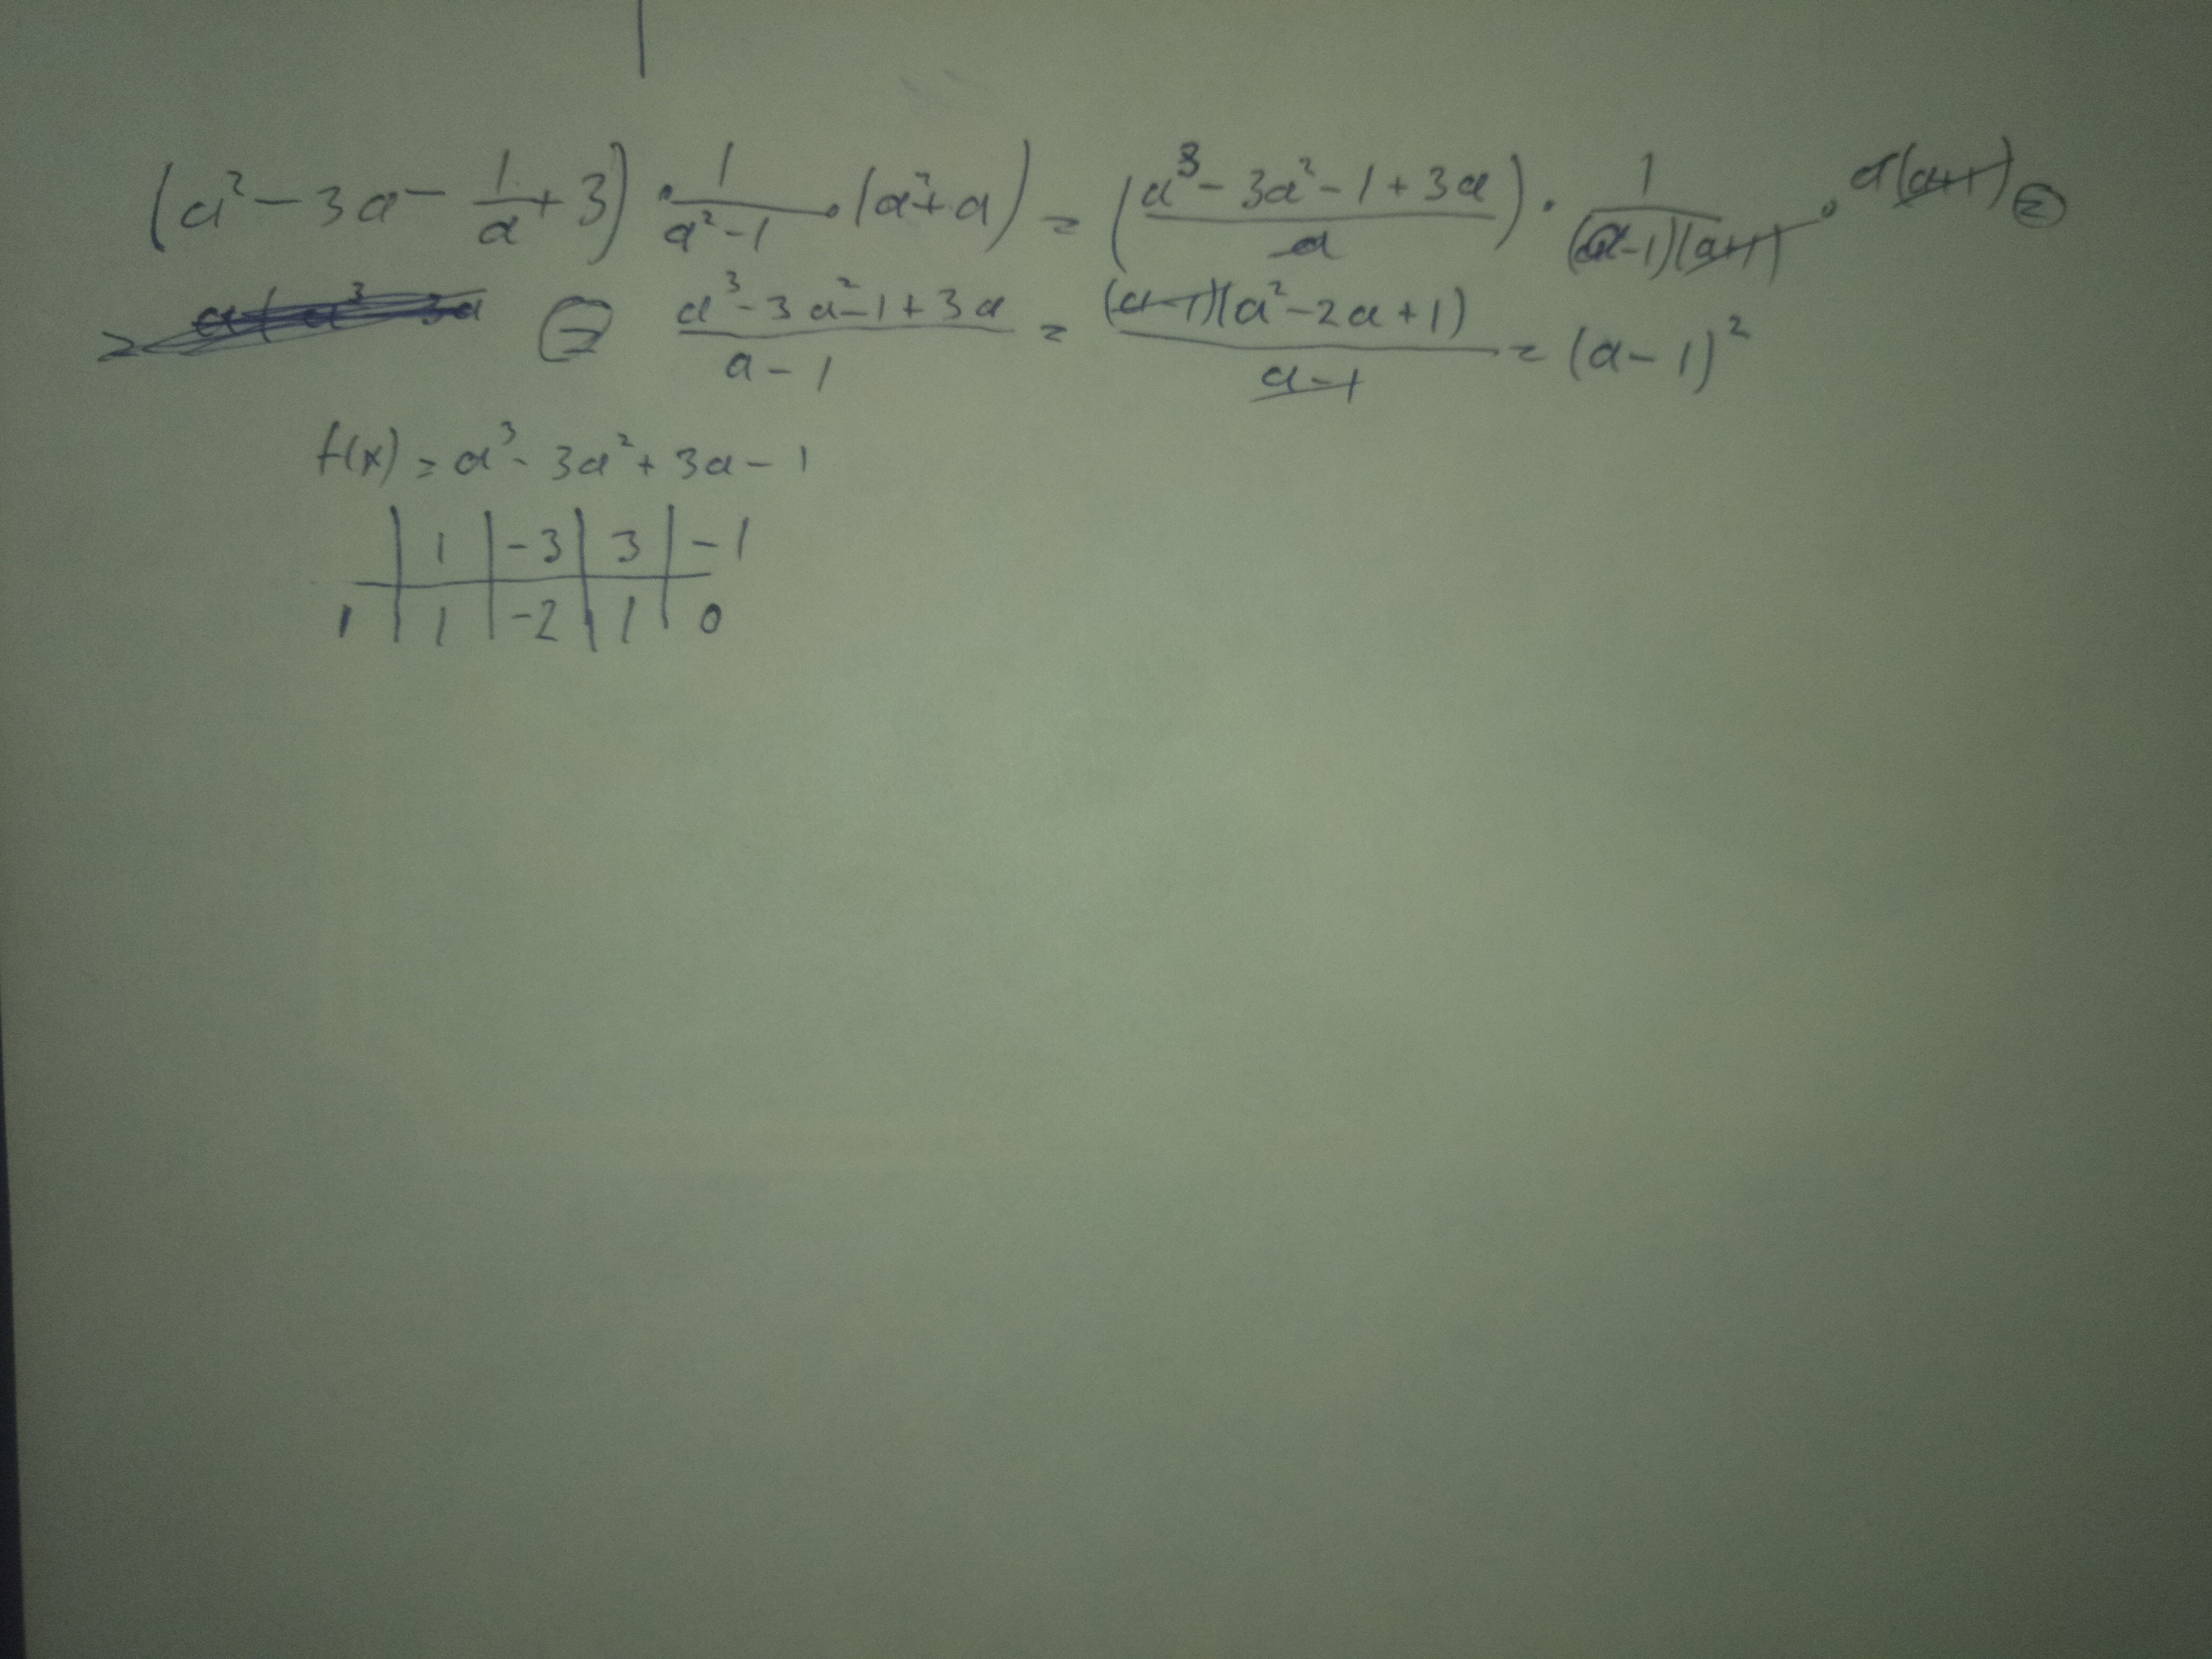 (a² - 3a - 1/a + 3) · 1/(a² - 1) · (a² + a) = ((a³ - 3a² - 1 + 3a)/a) · 1/((a-1)(a+1)) · a(a+1) =
= (a³ - 3a² - 1 + 3a)/(a - 1) = ((a-1)(a² - 2a + 1))/(a - 1) = (a - 1)²
f(x) = a³ - 3a² + 3a - 1
| 1 | -3 | 3 | -1
1 | 1 | -2 | 1 | 0